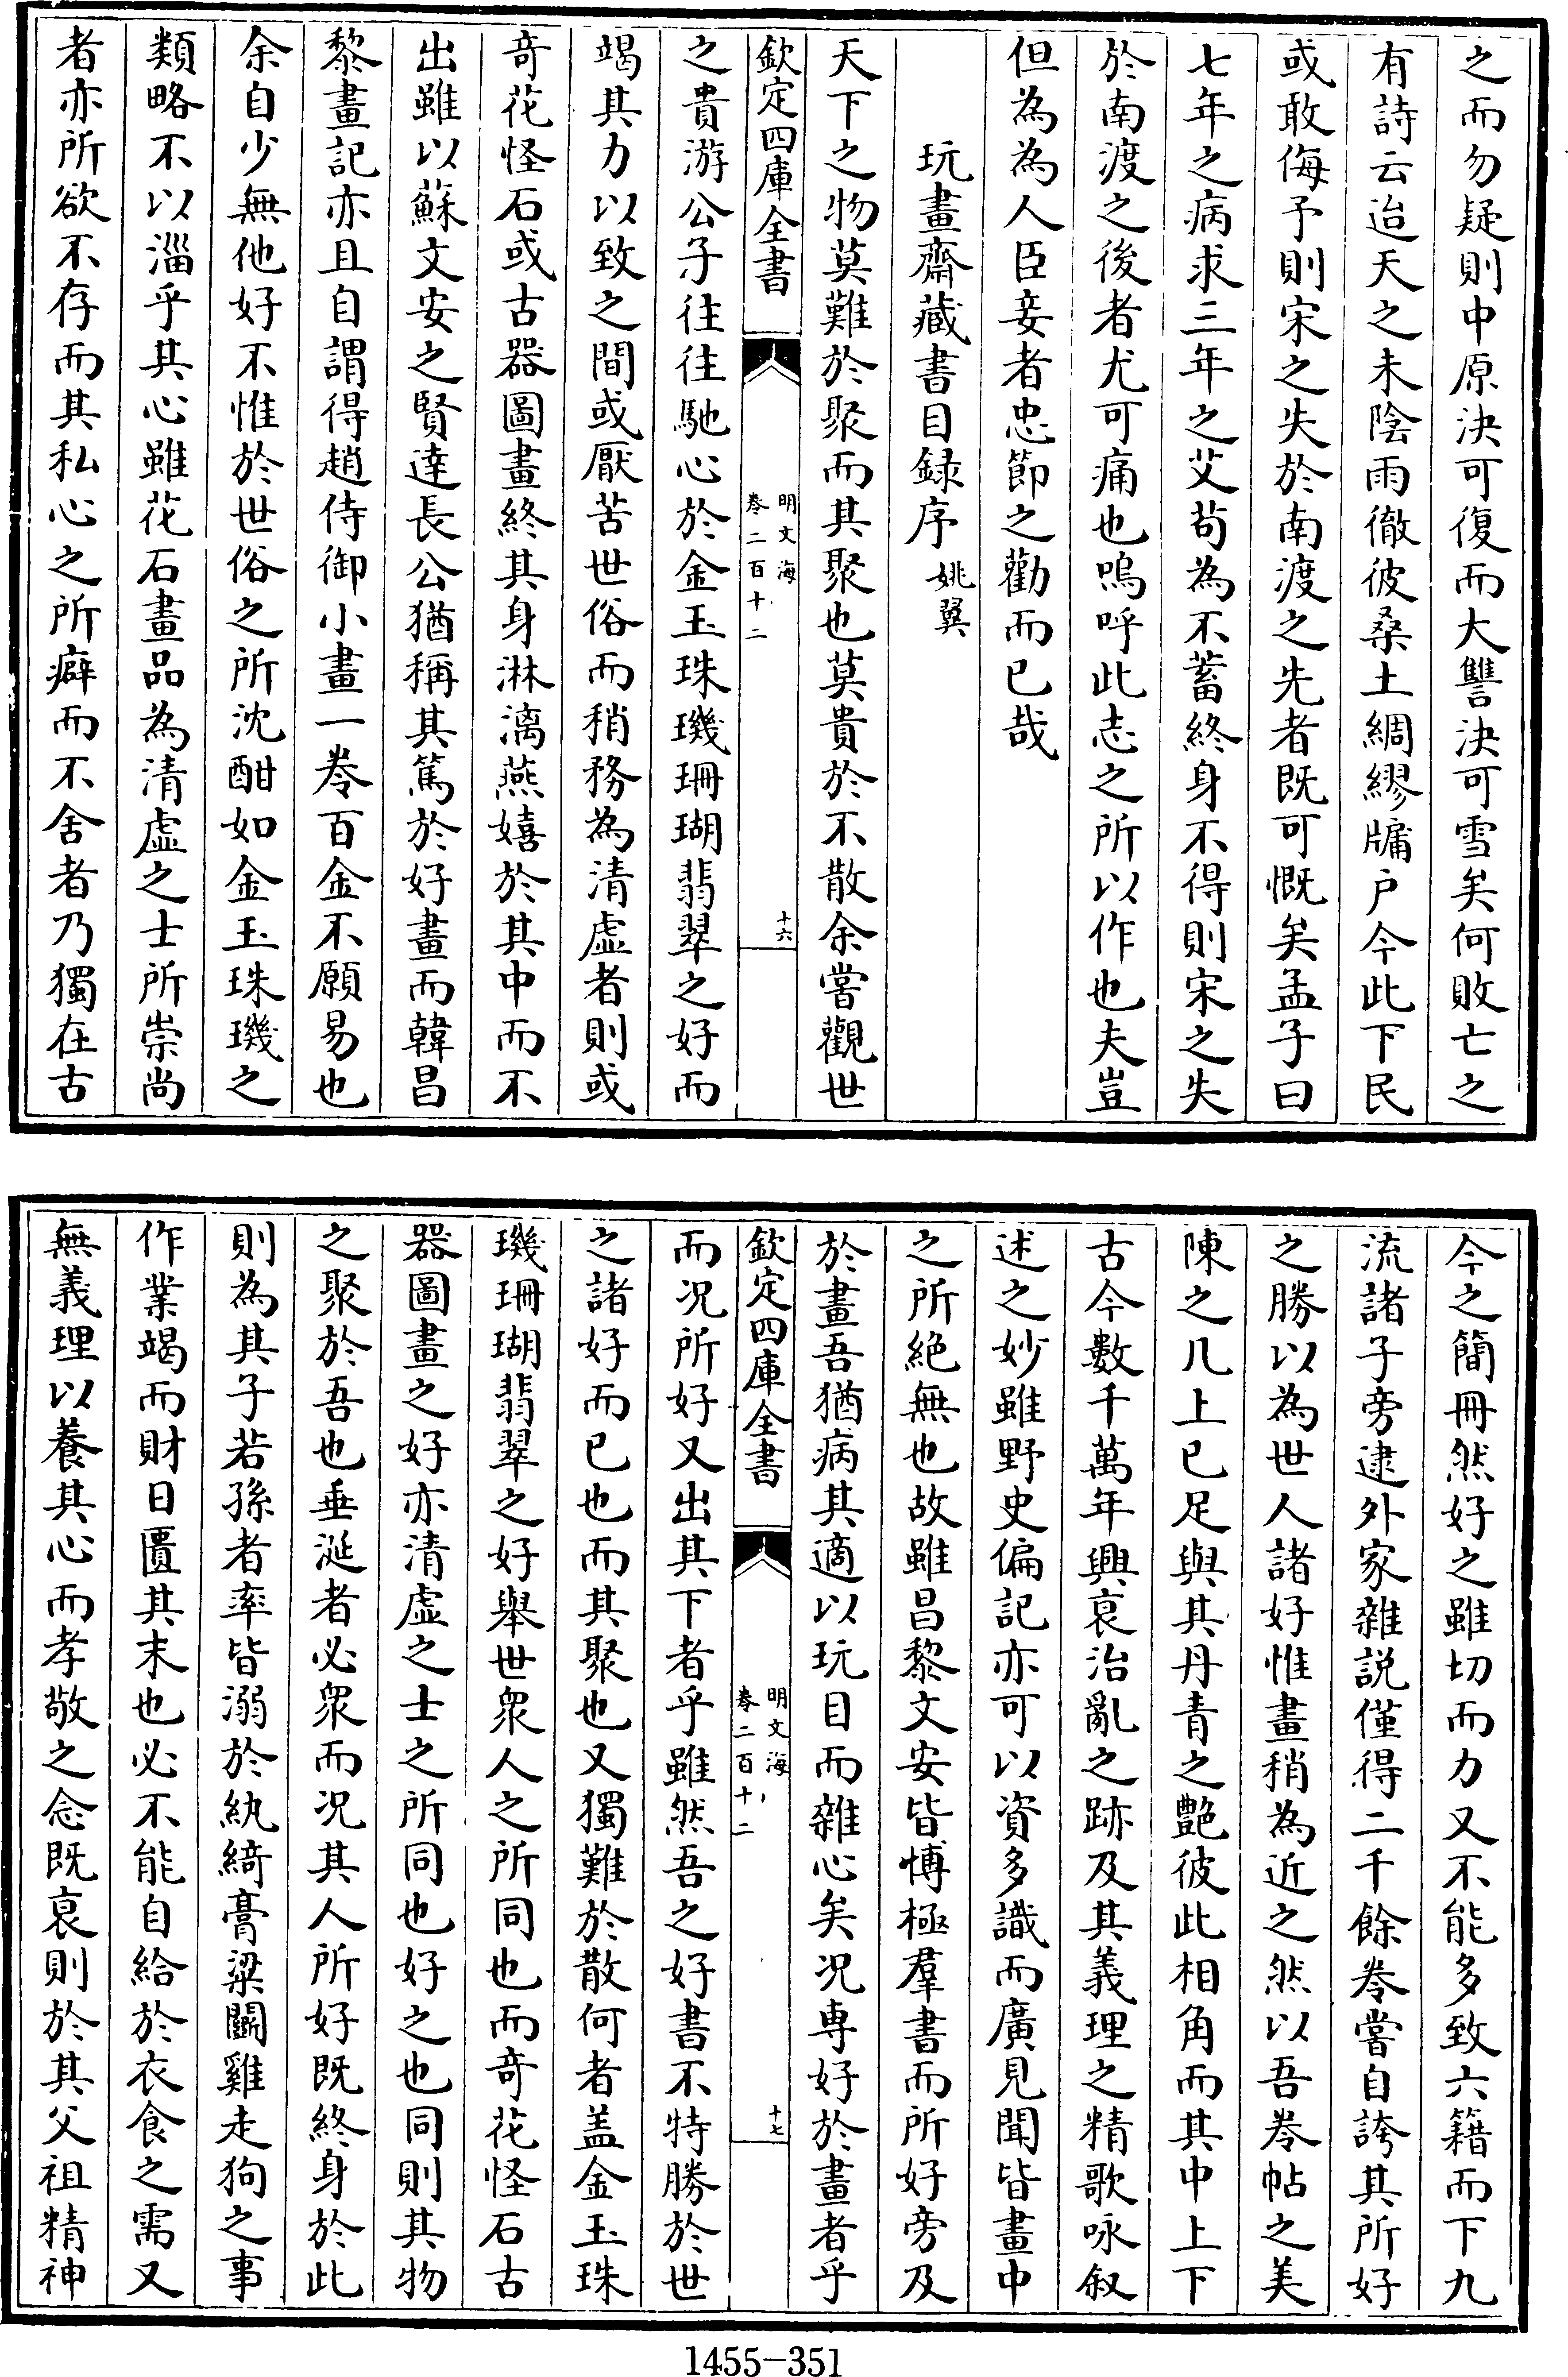 之而勿疑則中原決可復而大讐決可雪矣何敗亡之
有詩云迨天之未陰雨徹彼桑土綢繆牖户今此下民
或敢侮予則宋之失於南渡之先者既可慨矣孟子曰
七年之病求三年之艾茍為不蓄終身不得則宋之失
於南渡之後者尤可痛也嗚呼此志之所以作也夫豈
但為為人臣妾者忠節之勸而已哉
玩畫齋藏書目録序 姚翼
天下之物莫難於聚而其聚也莫貴於不散余嘗觀世
欽定四庫全書 明文海 卷二百十二 十六
之貴游公子往往馳心於金玉珠璣珊瑚翡翠之好而
竭其力以致之間或厭苦世俗而稍務為清虚者則或
奇花怪石或古器圖畫終其身淋漓燕嬉於其中而不
出雖以蘇文安之賢達長公猶稱其篤於好畫而韓昌
黎畫記亦且自謂得趙侍御小畫一卷百金不願易也
余自少無他好不惟於世俗之所沈酣如金玉珠璣之
類略不以淄乎其心雖花石畫品為清虚之士所崇尚
者亦所欲不存而其私心之所癖而不舍者乃獨在古
今之簡冊然好之雖切而力又不能多致六籍而下九
流諸子旁逮外家雜説僅得二千餘卷嘗自誇其所好
之勝以為世人諸好惟畫稍為近之然以吾卷帖之美
陳之几上已足與其丹青之艶彼此相角而其中上下
古今數千萬年興衰治亂之跡及其義理之精歌咏叙
述之妙雖野史偏記亦可以資多識而廣見聞皆畫中
之所絶無也故雖昌黎文安皆博極羣書而所好旁及
於畫吾猶病其適以玩目而雜心矣况専好於畫者乎
欽定四庫全書 明文海 卷二百十二 十七
而况所好又出其下者乎雖然吾之好書不特勝於世
之諸好而已也而其聚也又獨難於散何者盖金玉珠
璣珊瑚翡翠之好舉世衆人之所同也而奇花怪石古
器圖畫之好亦清虚之士之所同也好之也同則其物
之聚於吾也垂涎者必衆而况其人所好既終身於此
則為其子若孫者率皆溺於紈綺膏粱鬬雞走狗之事
作業竭而財日匱其末也必不能自給於衣食之需又
無義理以養其心而孝敬之念既衰則於其父祖精神
1455-351